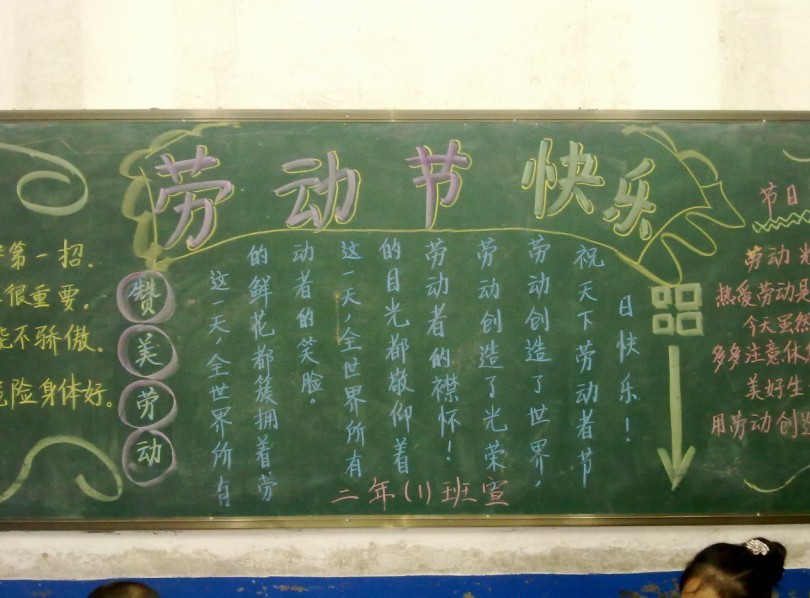 劳动节快乐
第一招.
很重要。
能不骄傲。
危险身体好。
赞美劳动
这一天,全世界所有
的鲜花都簇拥着劳
动者的笑脸。
这一天,全世界所有
的目光都敬仰着
劳动者的襟怀!
劳动创造了光荣
劳动创造了世界,
祝天下劳动者节
日快乐!
二年(1)班宣
节日
劳动
热爱劳动是
今天虽然
多多注意休
美好生
用劳动创造